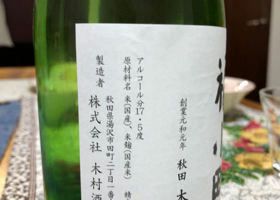 創業元和元年
秋田 木
アルコール分17・5度
原材料名 米(国産)、米麹(国産米) 精
秋田県湯沢市田町二丁目一番
製造者
株式会社 木村酒